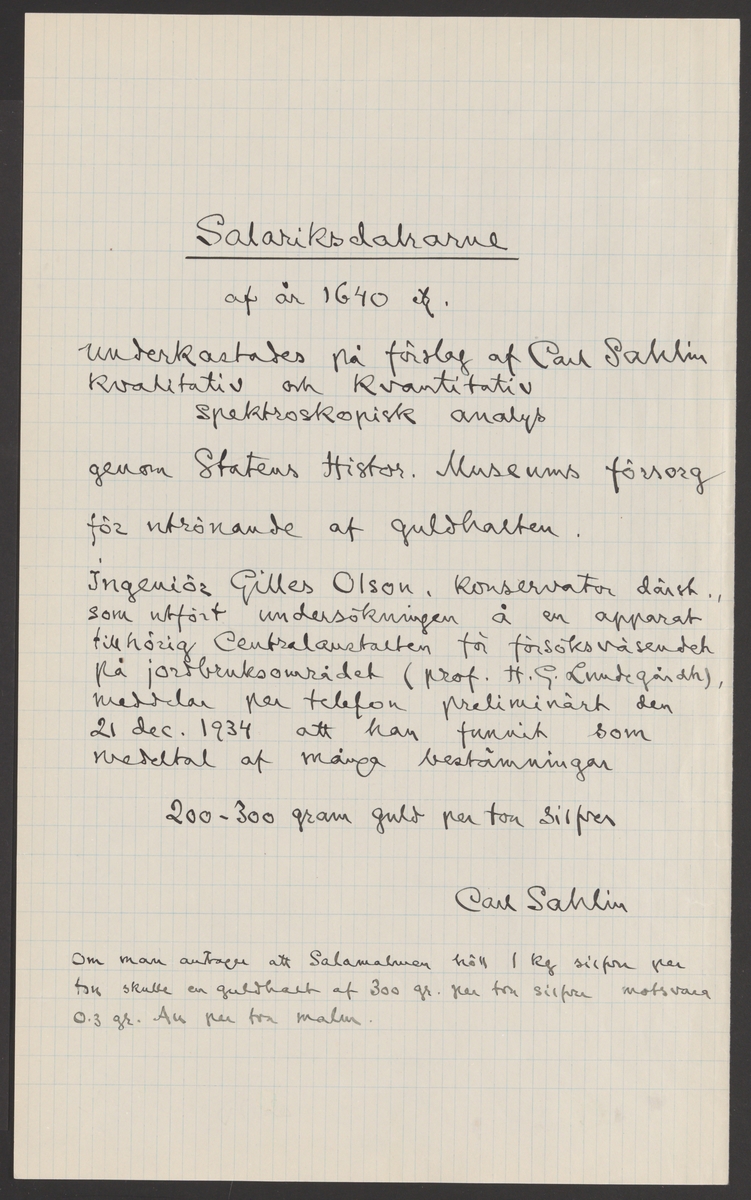 Salariksdalrarne
af år 1640 etc.
underkastades på förslag af Carl Sahlin
kvalitativ och kvantitativ
spektroskopisk analys
genom Statens Histor. Museums försorg
för utrönande af guldhalten.
Ingeniör Gilles Olson, konservator därst.,
som utfört undersökningen å en apparat
tillhörig Centralanstalten för försöksväsendet
på jordbruksområdet (prof. H.G. Lundegårdh),
meddelar per telefon preliminärt den
21 dec. 1934 att han funnit som
medeltal af många bestämningar
200-300 gram guld per ton silfver
Carl Sahlin
Om man antager att Salamalmen höll 1 kg silfver per
ton skulle en guldhalt af 300 gr. per ton silfver motsvara
0.3 gr. Au per ton malm.